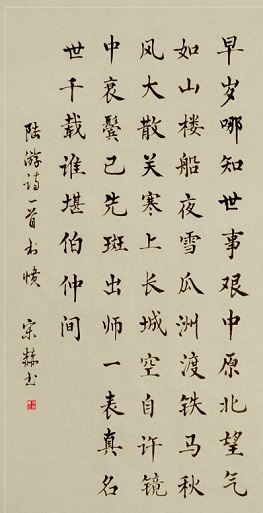 早岁哪知世事艰中原北望气
如山楼船夜雪瓜洲渡铁马秋
风大散关寒上长城空自许镜
中衰鬓已先斑出师一表真名
世千载谁堪伯仲间
陆游诗一首书愤 宋 书